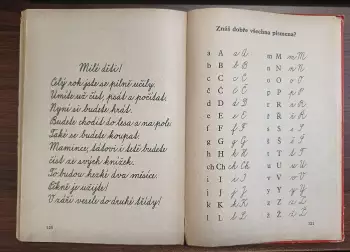 Milé děti!
Celý rok jste se pilně učily.
Umíte už číst, psát a počítat.
Nyní si budete hrát.
Budete chodit do lesa a na pole.
Také se budete koupat.
Mamince, tátovi i tetě budete
číst ze svých knížek.
To budou hezké dva měsíce.
Pěkně je užijte!
V září vesele do druhé třídy!
120
Znáš dobře všechna písmena?
a A a A
b B b B
c C c C
č Č č Č
d D d D
e E e E
f F f F
g G g G
h H h H
ch Ch ch Ch
i I i I
j J j J
k K k K
l L l L
m M m M
n N n N
o O o O
p P p P
r R r R
ř Ř ř Ř
s S s S
š Š š Š
t T t T
u U u U
v V v V
z Z z Z
ž Ž ž Ž
121